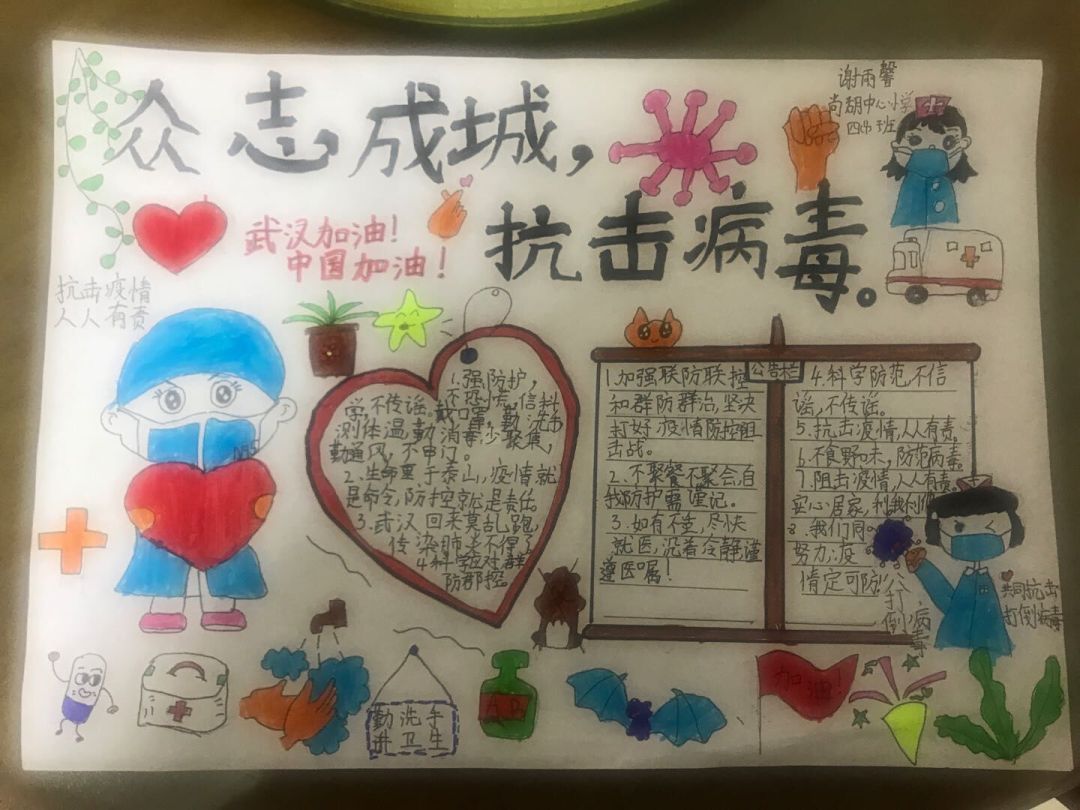 众志成城，
抗击病毒。
谢雨馨
尚胡中心小学
四班
武汉加油！
中国加油！
抗击疫情
人人有责
1.强防护，
不恐慌，信科
学不传谣。戴口罩，勤洗手
测体温，勤消毒，少聚焦，
勤通风，不串门。
2.生命重于泰山，疫情就
是命令，防控就是责任。
3.武汉回来莫乱跑，
传染肺炎不得了
4科学应对群
防群控。
公告栏
1.加强联防联控
和群防群治，坚决
打好，疫情防控阻
击战。
2.不聚餐不聚会，自
我防护需谨记。
3.如有不适，尽快
就医，沉着冷静谨
遵医嘱！
4.科学防范，不信
谣，不传谣。
5.抗击疫情，人人有责。
6.不食野味，防范病毒。
7.阻击疫情，人人有责。
安心居家，利我利他
8.我们同
努力，疫
情定可防
打倒病毒
共同抗击
打倒病毒
勤洗手
讲卫生
加油！